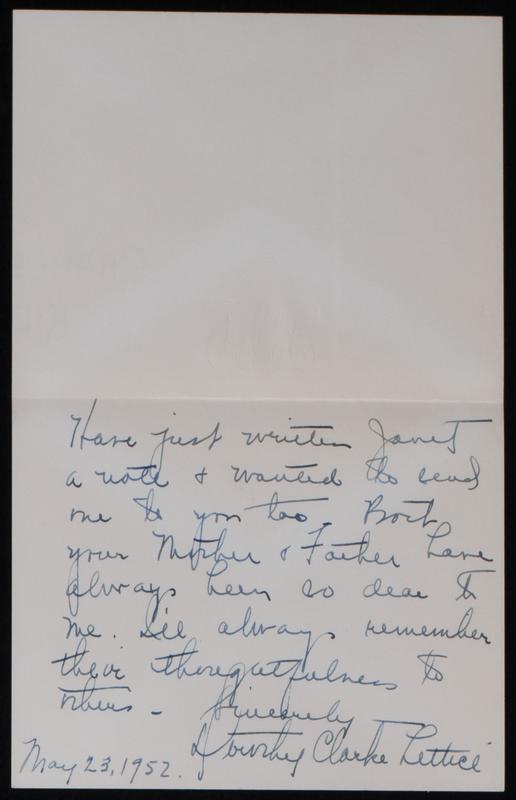 Have just written Janet
a note & wanted to send
one to you too. Both
your Mother & Father have
always been so dear to
me. I'll always remember
their thoughtfulness to
others - Sincerely
Dorothy Clarke Lettice
May 23, 1952.